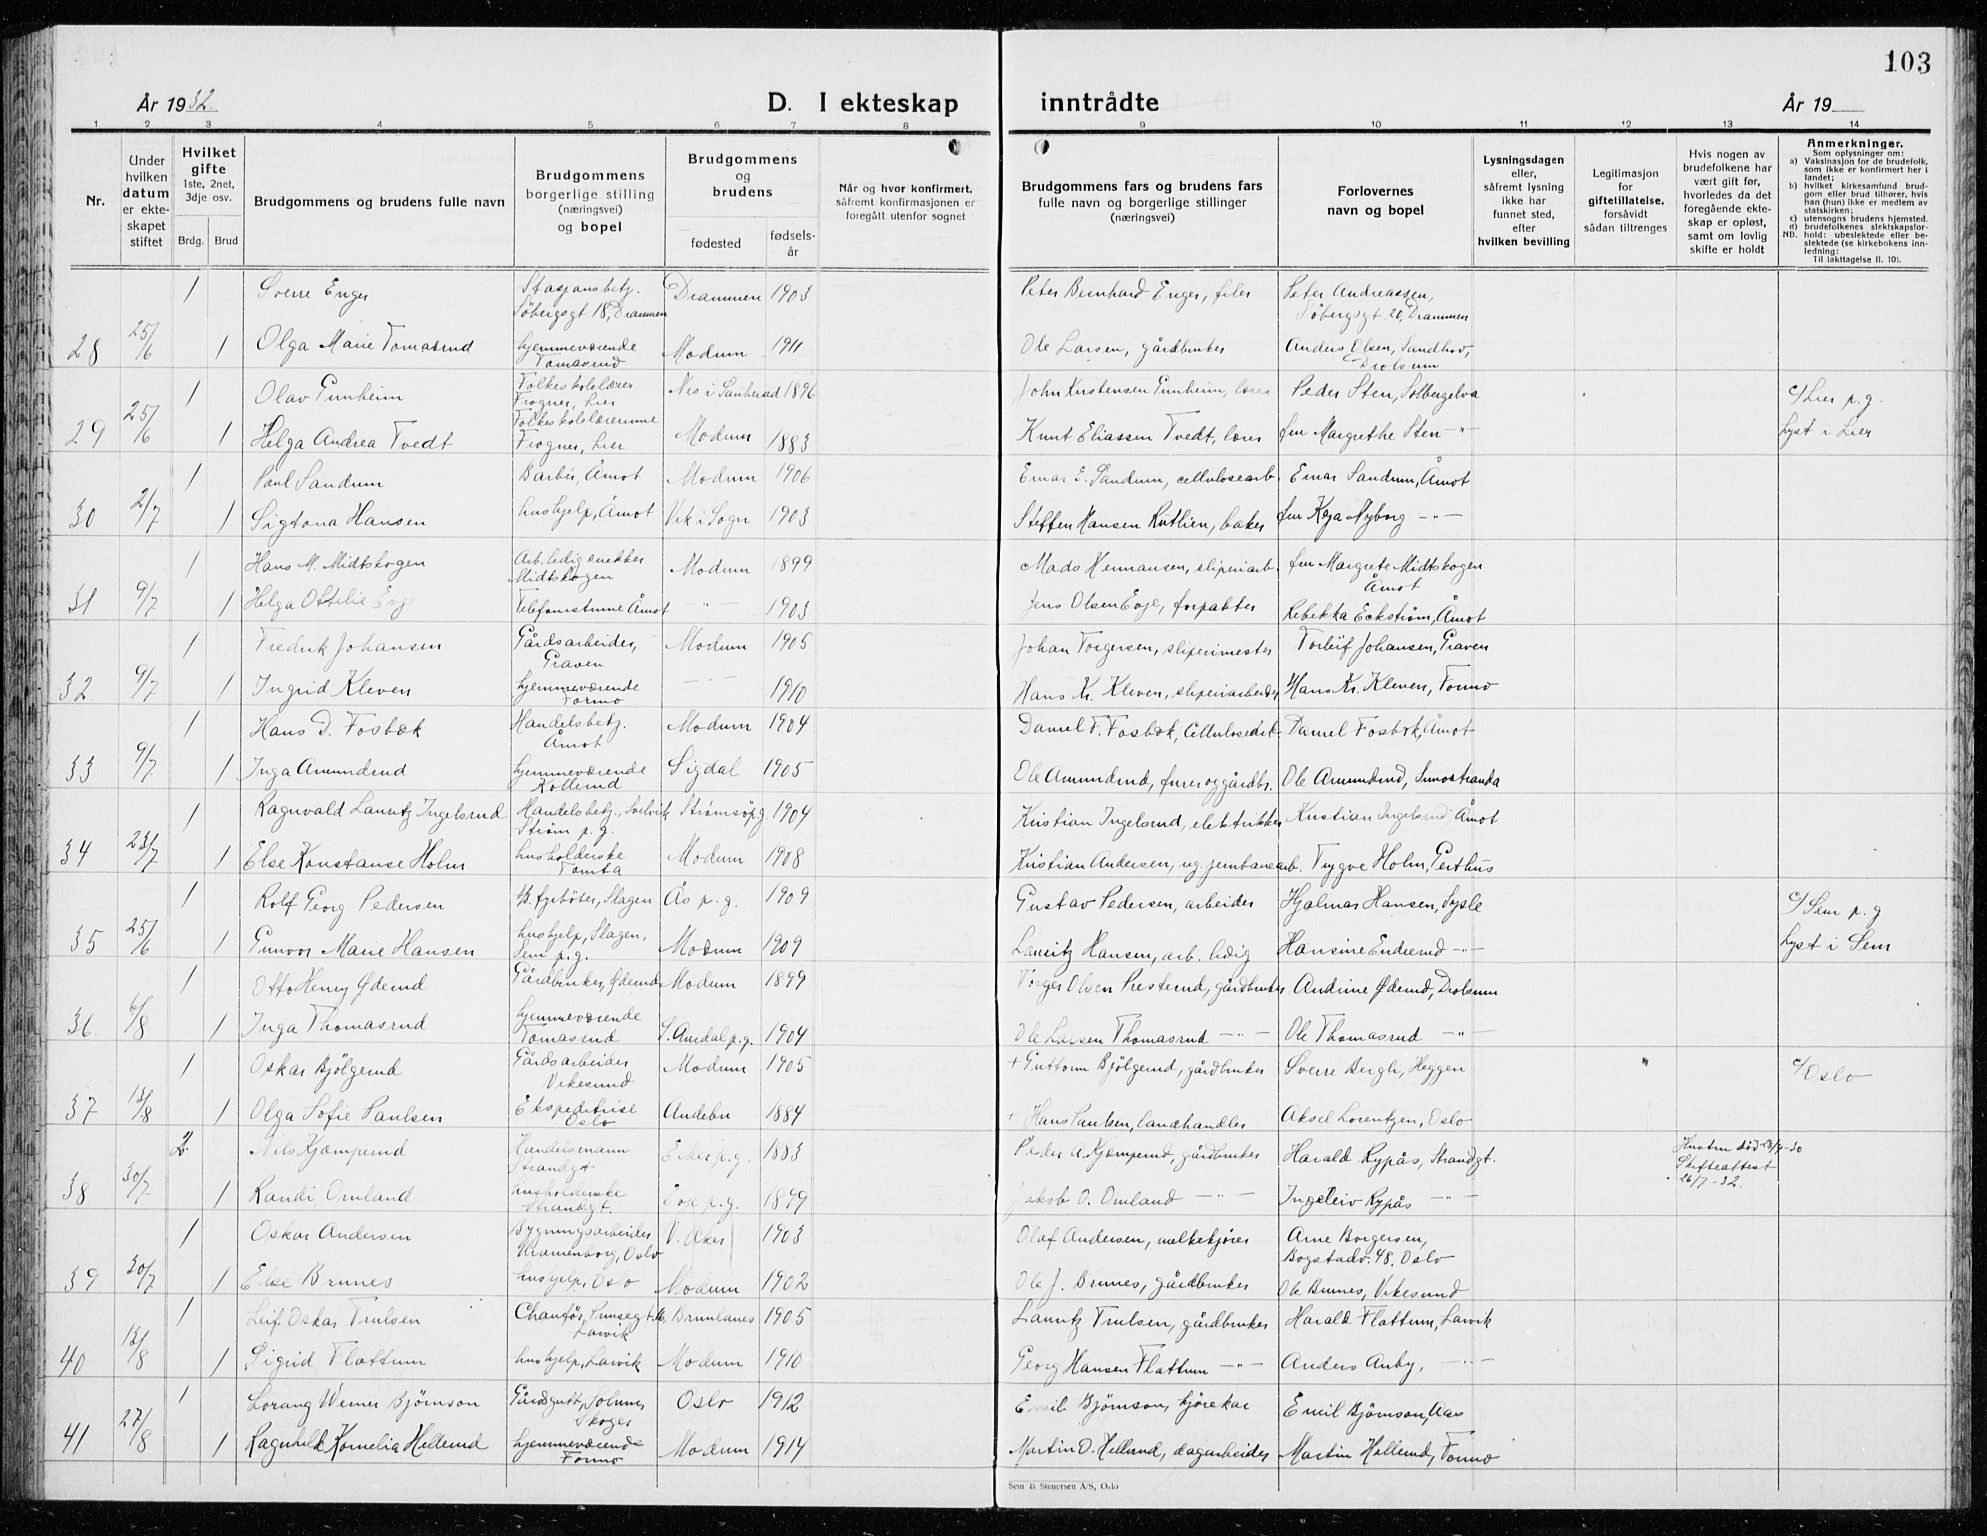 103
År 1932.
D. I ekteskap inntrådte
År 19
1 2 3 4 5 6 7 8 9 10 11 12 13 14
Nr.
Under hvilken datum er ekteskapet stiftet
Hvilket gifte 1ste, 2net, 3dje osv.
Brdg. Brud
Brudgommens og brudens fulle navn
Brudgommens borgerlige stilling (næringsvei) og bopel
Brudgommens og brudens
fødested
fødselsår
Når og hvor konfirmert, såfremt konfirmasjonen er foregått utenfor sognet
Brudgommens fars og brudens fars fulle navn og borgerlige stillinger (næringsvei)
Forlovernes navn og bopel
Lysningsdagen eller, såfremt lysning ikke har funnet sted, efter hvilken bevilling
Legitimasjon for giftetillatelse, forsåvidt sådan tiltrenges
Hvis nogen av brudefolkene har vært gift før, hvorledes da det foregående ekteskap er opløst, samt om lovlig skifte er holdt
Anmerkninger.
Som oplysninger om:
a) Vaksinasjon for de brudefolk, som ikke er konfirmert her i landet;
b) hvilket kirkesamfund brudgom eller brud tilhører, hvis han (hun) ikke er medlem av statskirken;
c) utensogns brudens hjemsted.
d) brudefolkenes slektskapsforhold: ubeslektede eller beslektede (se kirkebokens innledning:
NB. Til iakttagelse II. 10).
1 Sverre Enger Stasjonsbetj. Söbergsgt 18, Drammen Drammen 1903 Peter Bernhard Enger, filer Peter Andreassen, Söbergsgt 20, Drammen
28 25/6 1 Olga Marie Tomasrud hjemmeværende Tomasrud Modum 1911 Ole Larsen, gårdbruker Anders Olsen, Sandhov, Drolsum
1 Olav Gunheim Folkeskolelærer Frogner, Lier Nes i Sauherad 1896 John Kristensen Gunheim, lærer Peder Sten, Solbergelva c/ Lier p.g.
29 25/6 1 Helga Andrea Tvedt Folkeskolelærerinne Frogner, Lier Modum 1883 Knut Eliassen Tvedt, lærer fru Margrethe Sten -"- Lyst i Lier
1 Paul Sandum Barber, Åmot Modum 1906 Einar E. Sandum, cellulosearb. Einar Sandum, Åmot
30 2/7 1 Sigtona Hansen hushjelp, Åmot Vik i Sogn 1903 Steffen Hansen Rutlien, baker fru Kaja Nyborg -"-
1 Hans M. Midtskogen Arb.ledig snekker Midtskogen Modum 1899 Mads Hermansen, sliperiarb. fru Margrete Midtskogen Åmot
31 9/7 1 Helga Ottilie Evje Telefonistinne Åmot -"- 1903 Jens Olsen Evje, forpakter Rebekka Eckström, Åmot
1 Fredrik Johansen Gårdsarbeider, Graven Modum 1905 Johan Torgersen, sliperimester Torleif Johansen, Graven
32 9/7 1 Ingrid Kleven hjemmeværende Formo -"- 1910 Hans Kr. Kleven, sliperiarbeider Hans Kr. Kleven, Formo
1 Hans D. Fosbæk Handelsbetj. Åmot Modum 1904 Daniel F. Fosbæk, Cellulosearb. Daniel Fosbæk, Åmot
33 9/7 1 Inga Amundrud hjemmeværende Kollerud Sigdal 1905 Ole Amundrud, furer og gårdbr. Ole Amundrud, Simostranda
1 Ragnvald Lauritz Ingelsrud Handelsbetj., Svelvik Strøm p.g. Strømsö p.g. 1904 Kristian Ingelsrud, elektriker Kristian Ingelsrud Åmot
34 23/7 1 Else Konstanse Holm husholderske Tomta Modum 1908 Kristian Andersen, ug. jernbanearb. Trygve Holm, Gerthus
1 Rolf Georg Pedersen fyrböter, Slagen Ås p.g. 1909 Gustav Pedersen, arbeider Hjalmar Hansen, Sysle c/ Sem p.g
35 25/6 1 Gunvor Marie Hansen hushjelp, Slagen, Sem p.g. Modum 1909 Lauritz Hansen, arb. ledig Hansine Enderud -"- Lyst i Sem
1 Otto Henry Øderud Gårdbruker, Øderud Modum 1899 Torger Olsen Presterud, gårdbruker Andrine Øderud, Drolsum
36. 6/8 1 Inga Thomasrud hjemmeværende Tomasrud S. Aurdal p.g. 1904 Ole Larsen Thomasrud -"- Ole Thomasrud -"-
1 Oskar Bjölgerud Gårdsarbeider Vikesund Modum 1905 + Guttorm Bjölgerud, gårdbruker Sverre Bergh, Heggen c/ Oslo
37 13/8 1 Olga Sofie Paulsen Ekspeditrise Oslo Andebu 1884 + Hans Paulsen, landhandler Aksel Lorentzen, Oslo
2. Nils Kjæmperud Handelsmann Strandgt Eiker p.g. 1883 Peder A. Kjæmperud, gårdbruker Harald Rypås, Strandgt. Hustru död 23/4-30 Skifteattest 26/7-32.
38 30/7 1 Randi Omland husholderske Strandgt. p.g. 1899 Jakob O. Omland -"- Ingeleiv Rypås -"-
1 Oskar Andersen Bygningsarbeider Oslo V. Aker 1903 Olaf Andersen, melkekjører Arne Borgersen, Bogstadv. 48, Oslo
39 30/7 1 Else Brunes hushjelp, Oslo Modum 1902 Ole J. Brunes, gårdbruker Ole Brunes, Vikesund
1 Leif Oskar Trulsen Chauför, Larvik Brunlanes 1905 Lauritz Trulsen, gårdbruker Harald Flattum, Larvik
40 13/8 1 Sigrid Flattum hushjelp, Larvik Modum 1910 Georg Hansen Flattum -"- Anders Auby, -"-
1 Lorang Werner Bjørnson Gårdsgutt, Solum, Skoger Oslo 1912 Emil Bjørnson, kjörekar Emil Bjørnson, Aas
41 27/8 1 Ragnhild Kornelia Hellerud hjemmeværende Formo Modum 1914 Martin O. Hellerud, dagarbeider Martin Hellerud, Formo
Sem & Stenersen A/S, Oslo